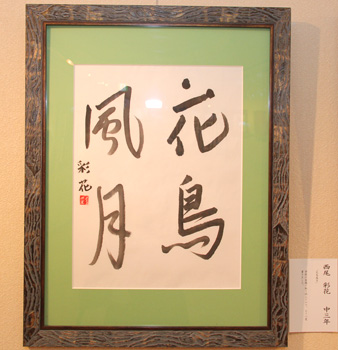 花鳥
風月
彩花
西尾 彩花 中三年